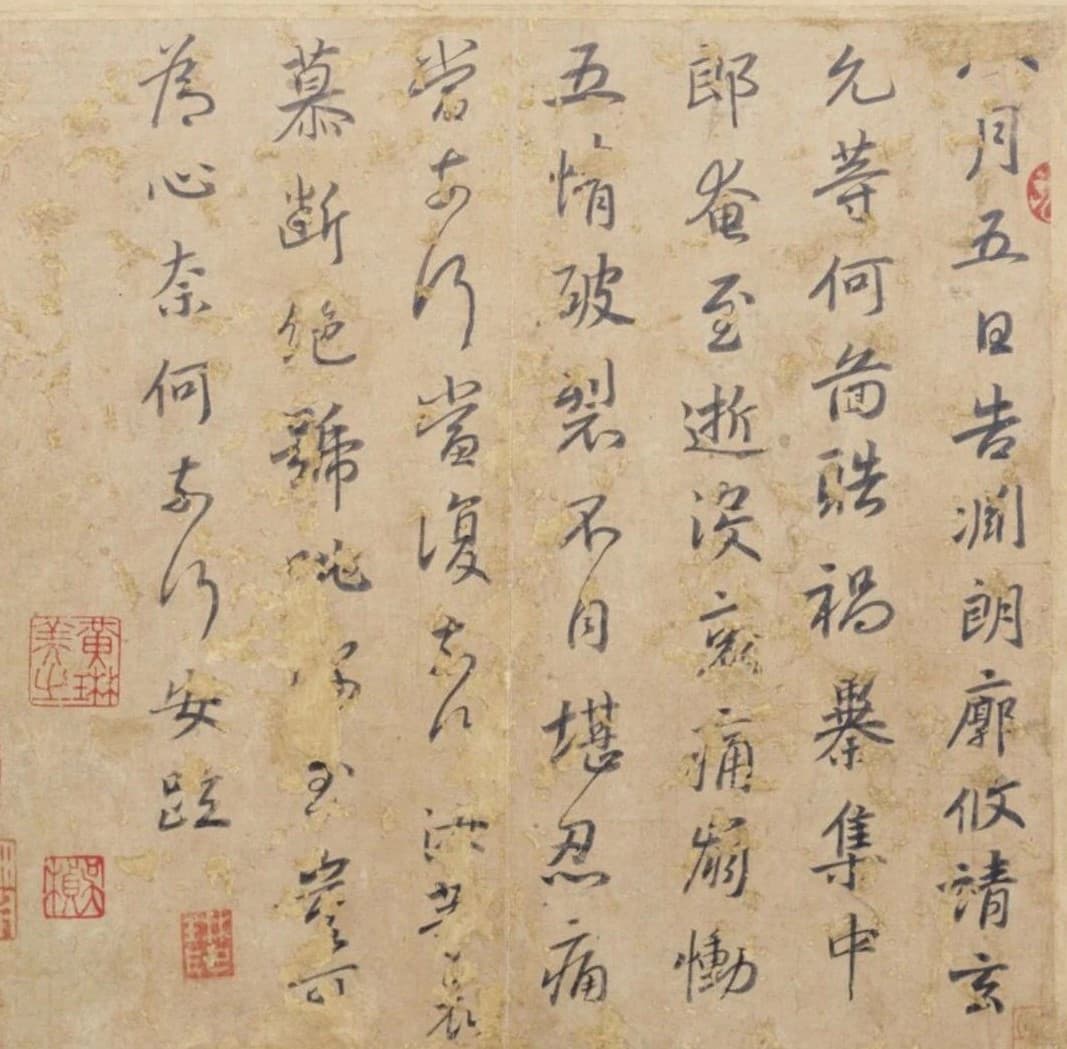 八月五日告淵朗廓攸靖玄
允等何啚酷禍暴集中
郎奄至逝没哀痛崩慟
五情破裂不自堪忍痛
當奈何當復奈何汝等哀
慕斷絶號咷深至豈可
為心奈何奈何安疏
黃琳美之
吳楨